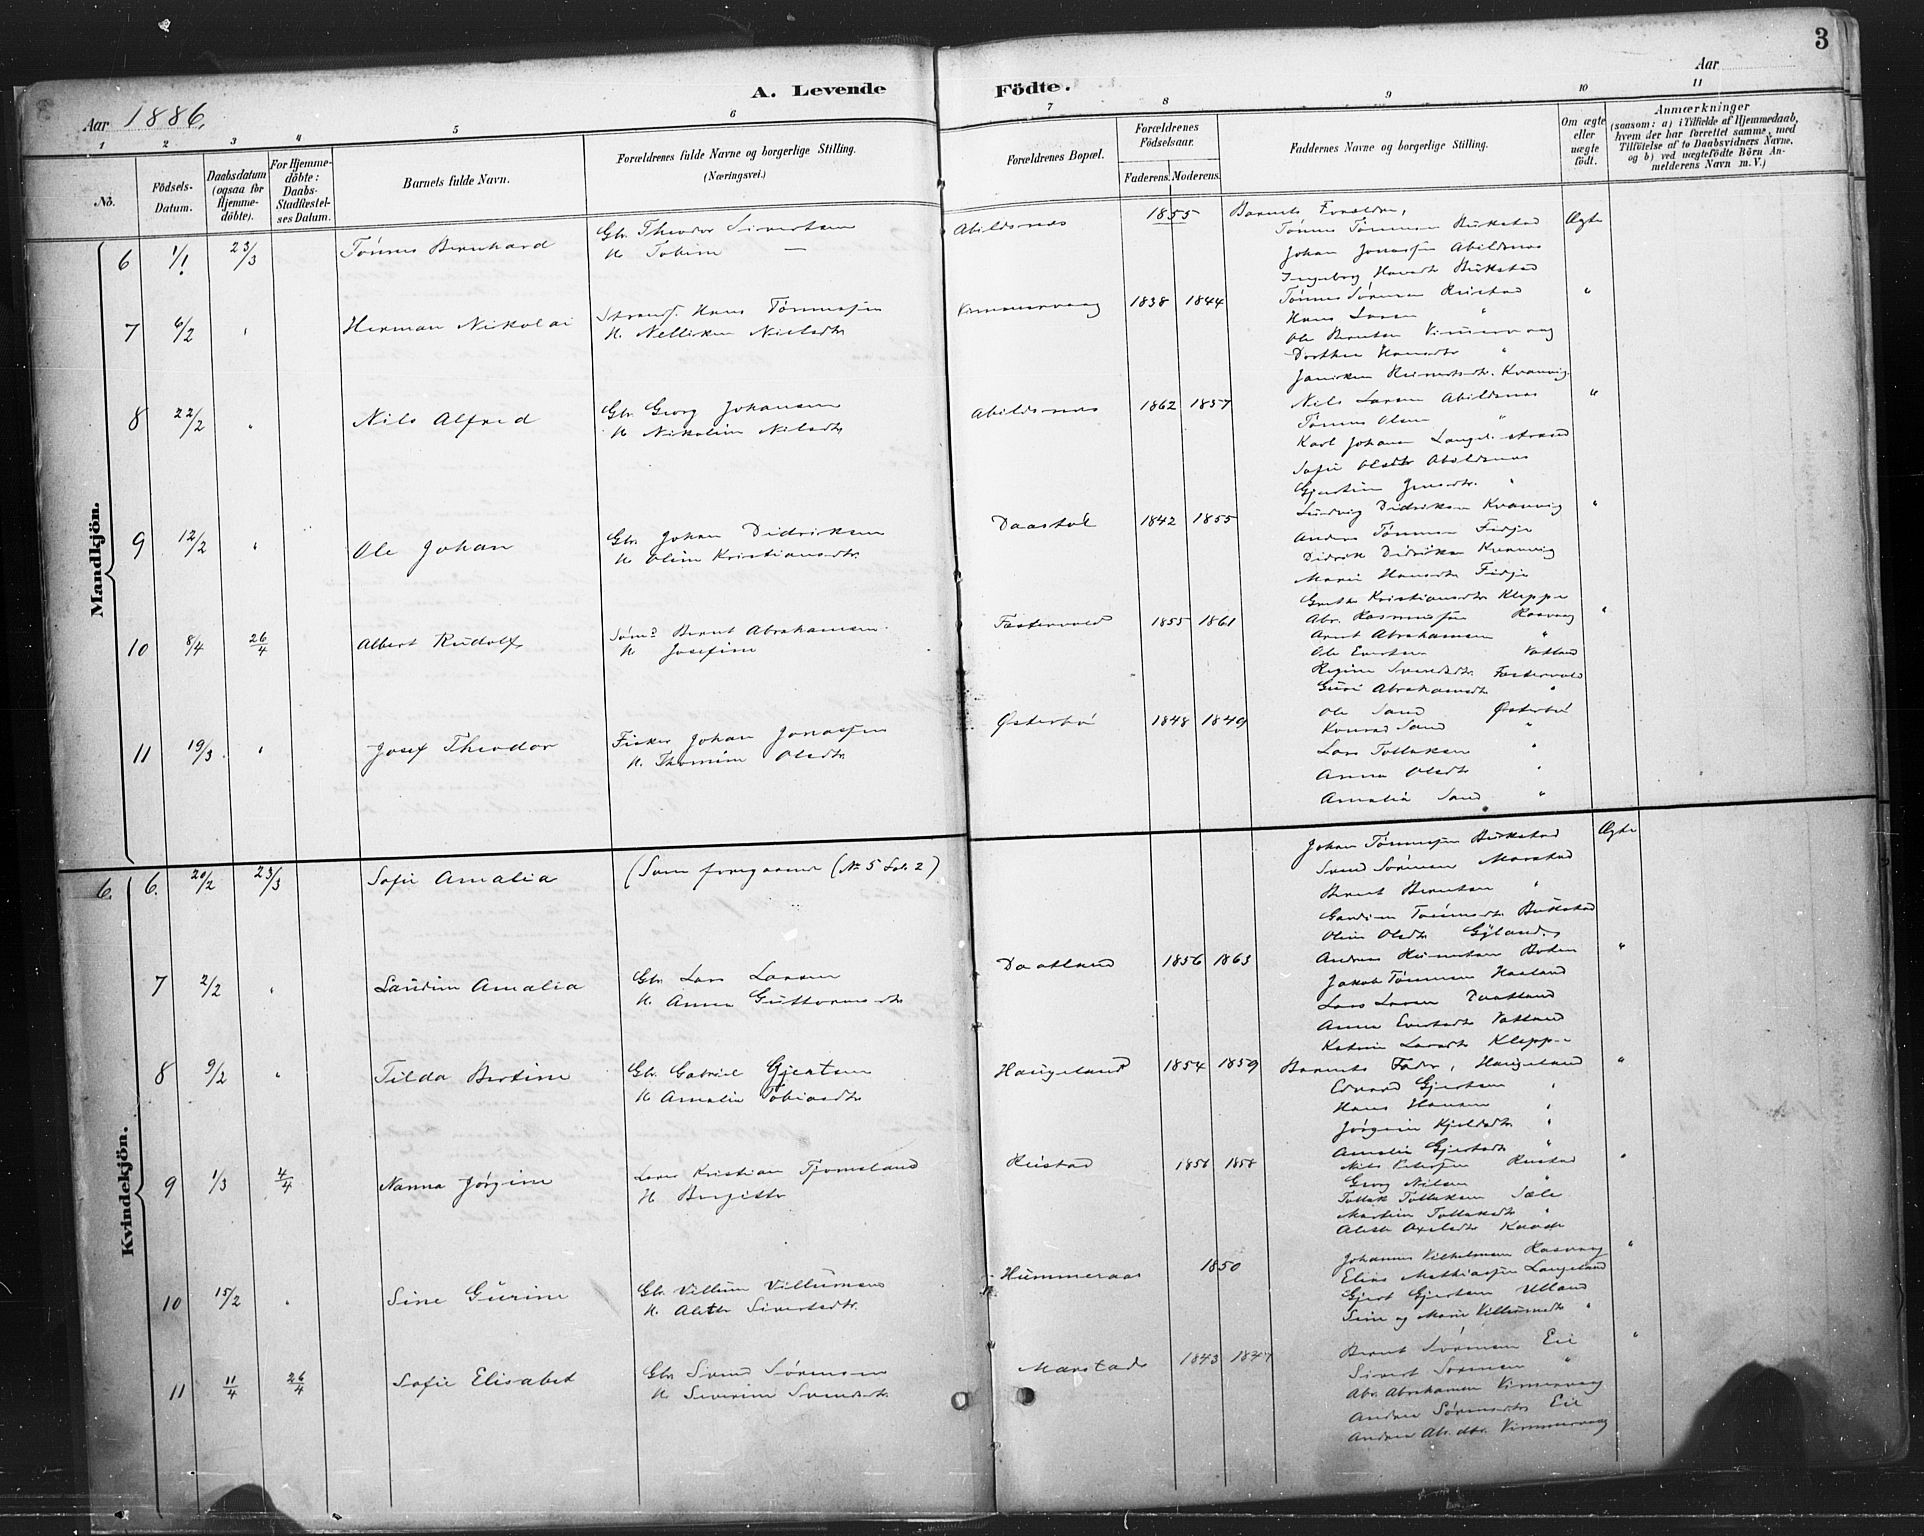 3
Aar 1886.
A. Levende Födte.
Aar
1 2 3 4 5 6 7 8 9 10 11
No.
Födsels-Datum.
Daabsdatum (ogsaa for Hjemme-döbte).
For Hjemme-döbte: Daabs-Stadfæstel-ses Datum.
Barnets fulde Navn.
Forældrenes fulde Navne og borgerlige Stilling.
(Næringsvei.)
Forældrenes Bopæl.
Forældrenes Födselsaar.
Faderens. Moderens.
Faddernes Navne og borgerlige Stilling.
Om ægte eller uægte födt.
Anmærkninger
(saasom: a) i Tilfælde af Hjemmedaab, hvem der har forrettet samme, med Tilföielse af to Daabsvidners Navne, og b) ved uægtefödte Börn An-melderens Navn m. V.)
Mandkjön.
6 1/1 23/3 Tönnes Bernhard
Gbr. Theodor Sivertsen
H. Tobine —
Abildsnes 1855
Barnets Forældre,
Tönnes Tönnesen Bukstad
Johan Jonassen Abildsnes
Ingeborg Hansdtr Bukstad
Ægte
7 6/2 " Herman Nikolai
Strands. Hans Tönnessen
H. Nelliken Nielsdtr
Virmeresvaag 1838 1844
Tönnes Sörensen Rustad
Hans Larsen "
Ole Berntsen
Dorthea Hansdtr "
Reinertsdtr. Kvanvig
"
8 22/2 " Nils Alfred
Gbr. Georg Johansen
H. Nikoline Nilsdtr
Abildsnes 1862 1857
Nils Larsen Abildsnes
Tönnes Olsen "
Karl Johansen Langel. strand
Sofie Olsdtr Abildsnes
Gjertine Jensdtr. "
"
9 12/2 " Ole Johan
Gbr. Johan Didriksen
H. Oline Kristiansdtr.
Daastöl 1842 1855
Ludvig Didriksen Kvanvig
Anders Tönnesen Fidje
Didrik Didriksen Kvanvig
Marie Hansdtr Fidje
Grethe Kristiansdtr Kleppe
"
10 8/4 26/4 Albert Rudolf
Sömd Bernt Abrahamsen
H. Josefine
Fostervold 1855 1861
Abr. Rasmussen Rasvaag
Arnt Abrahamsen "
Ole Evertsen Vatland
Regine Svendsdtr Fostervold
Guri Abrahamsdtr "
"
11 19/3 " Josef Theodor
Fisker Johan Jonassen
H. Thomine Olsdtr.
Österbö 1848 1849
Ole Sand Österbö
Konrad Sand "
Lars Tollaksen "
Anna Olsdtr "
Amalia Sand "
Kvindekjön.
6. 6. 20/2 23/3 Sofie Amalia
(Som foregaaende (No 5 Sol. 2)
Johan Tönnessen Bukstad
Svend Sörensen Marstad
Bernt Berntsen "
Tönnesdtr. Bukstad
Oline Olsdtr Gyland.
Ægte
7 2/2 " Laurine Amalia
Gbr. Lars Larsen
H. Anna Guttormsdtr
Daatland 1856 1863
Andreas Reinertsen Boden
Jakob Tönnesen Haaland
Lars Larsen Daatland
Anna Evertsdtr Vatland
Katrine Larsdtr Kleppe
"
8 9/2 " Tilda Bertine
Gbr. Gabriel Gjertsen
H. Amalie Tobiasdtr
Haugeland 1854 1859
Barnets Fader, Haugeland
Edvard Gjertsen "
Hans Hansen "
Jörgine Kjeldsdtr "
Amalie Gjertsdtr "
"
9 1/3 4/4 Nanna Jörgine
Lærer Kristian Tjomsland
H. Birgitte
Rustad 1858 1858
Nils Petersen Rustad
Georg Nilsen "
Tollak Tollaksen Sæle
Martine Tollaksdtr "
Axelsdtr
"
10 15/2 " Sine Gurine
Gbr. Villum Villumsen
H. Alethe Sivertsdtr.
Hummeraas 1850
Johannes Vilhelmsen Rasvaag
Elias Mathiassen Langeland
Gjert Gjertsen Ulland
Sine og Marie Villumsdtr "
"
11 11/4 26/4 Sofie Elisabet
Gbr. Svend Sörensen
H. Severine Svendsdtr.
Marstad 1843 1847
Bernt Sörensen Eie
Sivert Sörensen "
Abr. Abrahamsen Virmeresvaag
Andrea Sörensdtr Eie
Andrea Abr.dtr. Virmeresvaag
"